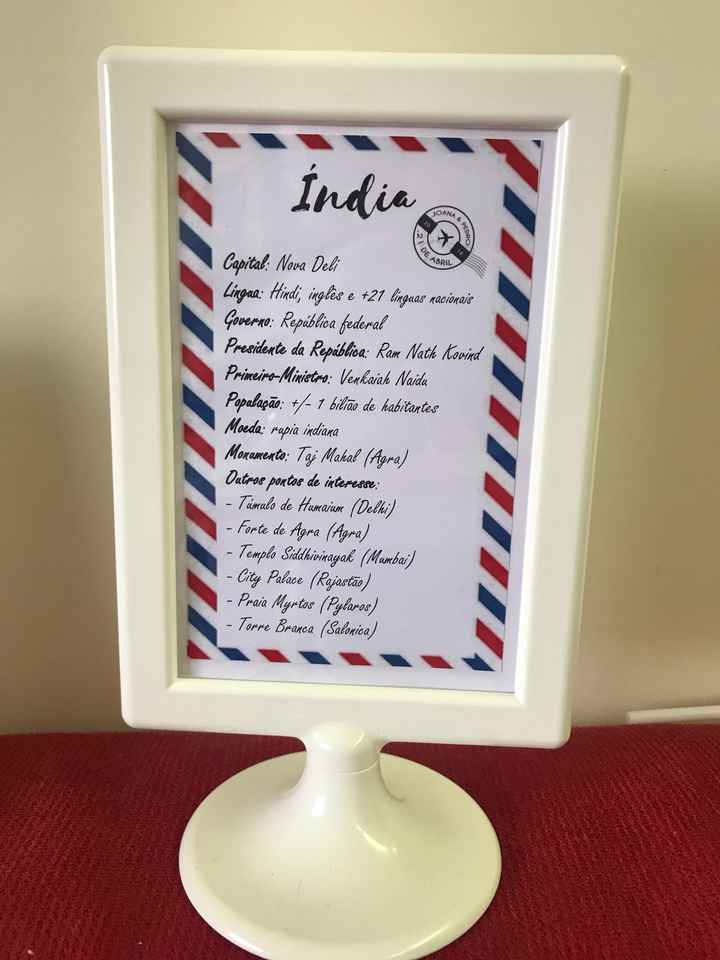 Índia
JOANA & PEDRO
21 DE ABRIL
Capital: Nova Deli
Língua: Hindi, inglês e +21 línguas nacionais
Governo: República federal
Presidente da República: Ram Nath Kovind
Primeiro-Ministro: Venkaiah Naidu
População: +/- 1 bilião de habitantes
Moeda: rupia indiana
Monumento: Taj Mahal (Agra)
Outros pontos de interesse:
- Túmulo de Humaium (Delhi)
- Forte de Agra (Agra)
- Templo Siddhivinayak (Mumbai)
- City Palace (Rajastão)
- Praia Myrtos (Pylaros)
- Torre Branca (Salonica)